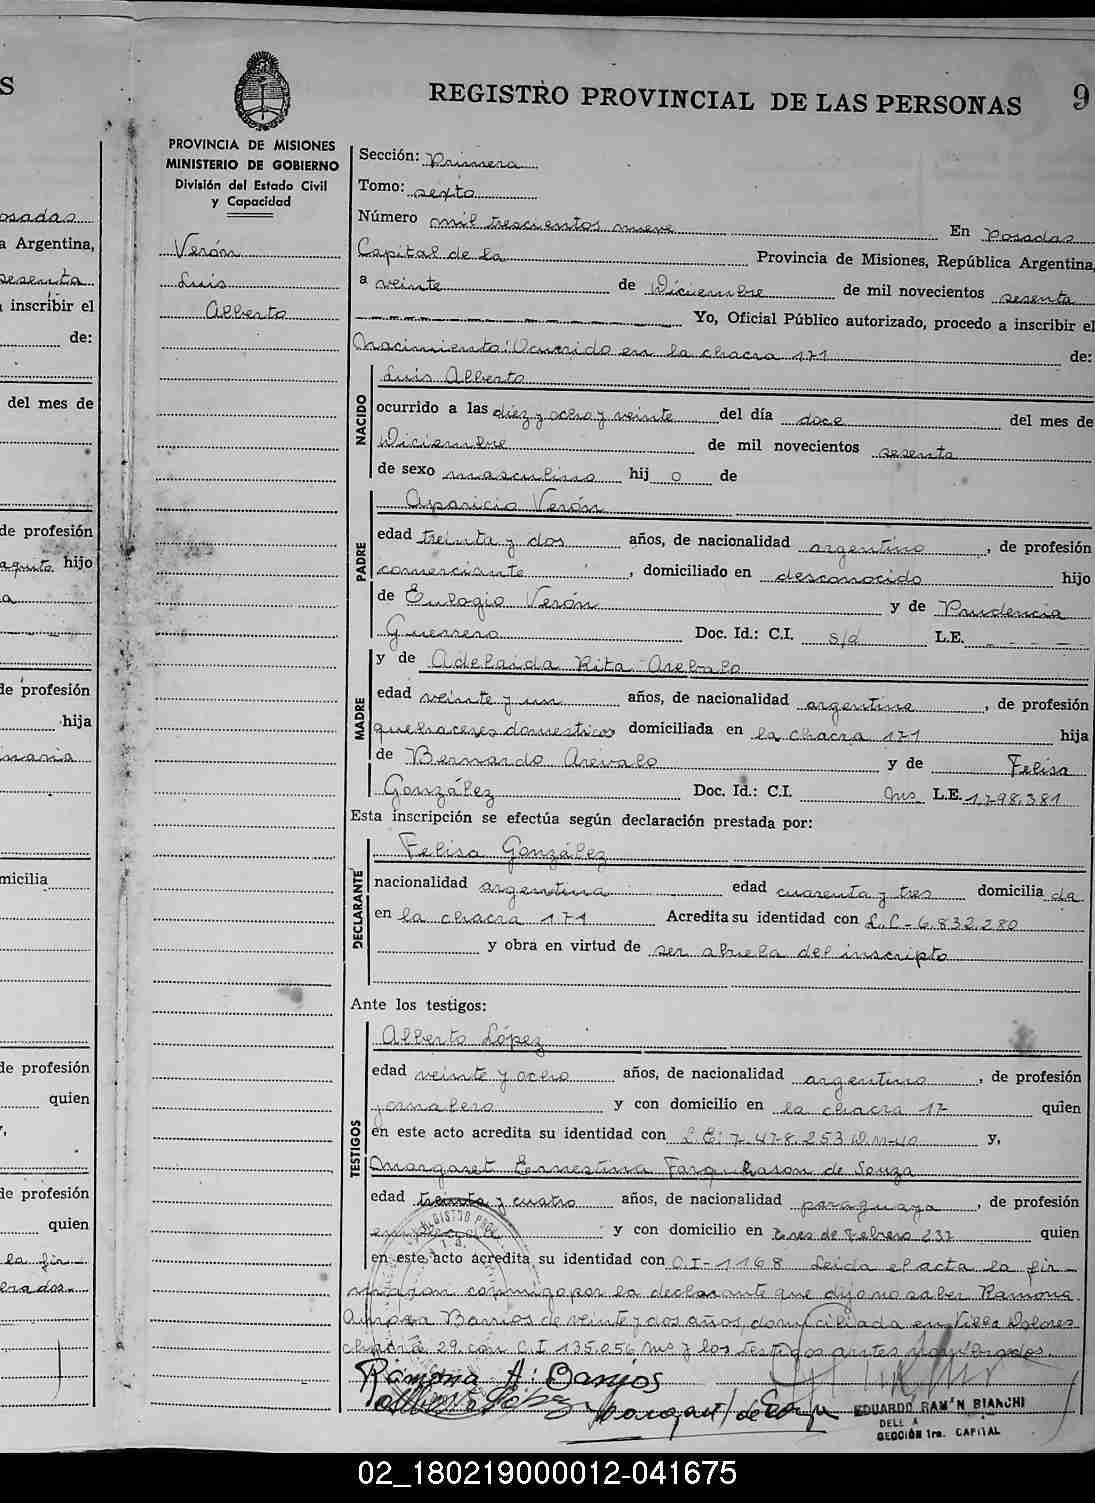 S
REGISTRO PROVINCIAL DE LAS PERSONAS
9
PROVINCIA DE MISIONES
MINISTERIO DE GOBIERNO
División del Estado Civil
y Capacidad
Verón
Luis
Alberto
osadas
a Argentina,
esenta
inscribir el
de:
del mes de
de profesión
hijo
a
de profesión
hija
inaria
micilia
de profesión
quien
y,
de profesión
quien
la fir-
erados.
Sección: Primera
Tomo: sexto
Número mil trescientos nueve En Posadas
Capital de la Provincia de Misiones, República Argentina,
a veinte de Diciembre de mil novecientos sesenta
Yo, Oficial Público autorizado, procedo a inscribir el
Nacimiento: Ocurrido en la chacra 171 de:
NACIDO
Luis Alberto
ocurrido a las diez y ocho y veinte del día doce del mes de
Diciembre de mil novecientos sesenta
de sexo masculino hij o de
PADRE
Aparicio Verón
edad treinta y dos años, de nacionalidad argentino, de profesión
comerciante, domiciliado en desconocido hijo
de Eulogio Verón y de Prudencia
Guerrero Doc. Id.: C.I. s/d L.E. - - -
MADRE
y de Adelaida Rita Arebalo
edad veinte y un años, de nacionalidad argentina, de profesión
quehaceres domesticos domiciliada en la chacra 171 hija
de Bernardo Arevalo y de Felisa
González Doc. Id.: C.I. Mns. L.E. 1.798.381
Esta inscripción se efectúa según declaración prestada por:
DECLARANTE
Felisa González
nacionalidad argentina edad cuarenta y tres domicilia da
en la chacra 171 Acredita su identidad con L.C - 6.832.280
y obra en virtud de ser abuela del inscripto
Ante los testigos:
TESTIGOS
Alberto López
edad veinte y ocho años, de nacionalidad argentino, de profesión
jornalero y con domicilio en la chacra 17 quien
en este acto acredita su identidad con L.E: 7.478.253 D.M-40 y,
Margaret Ernestina Farquharson de Souza
edad treinta y cuatro años, de nacionalidad paraguaya, de profesión
empleada y con domicilio en tres de Febrero 237 quien
en este acto acredita su identidad con C.I-1168 Leida el acta la fir-
maron conmigo por la declarante que dijo no saber Ramona
Barrios de veinte y dos años, domiciliada en Villa Dolores
chacra 29 con C.I 135.056 Mns y los testigos antes nombrados.
Ramona A. Barrios
Alberto López
Margaret de Souza
EDUARDO RAMÓN BIANCHI
SECCIÓN 1ra. CAPITAL
02_180219000012-041675